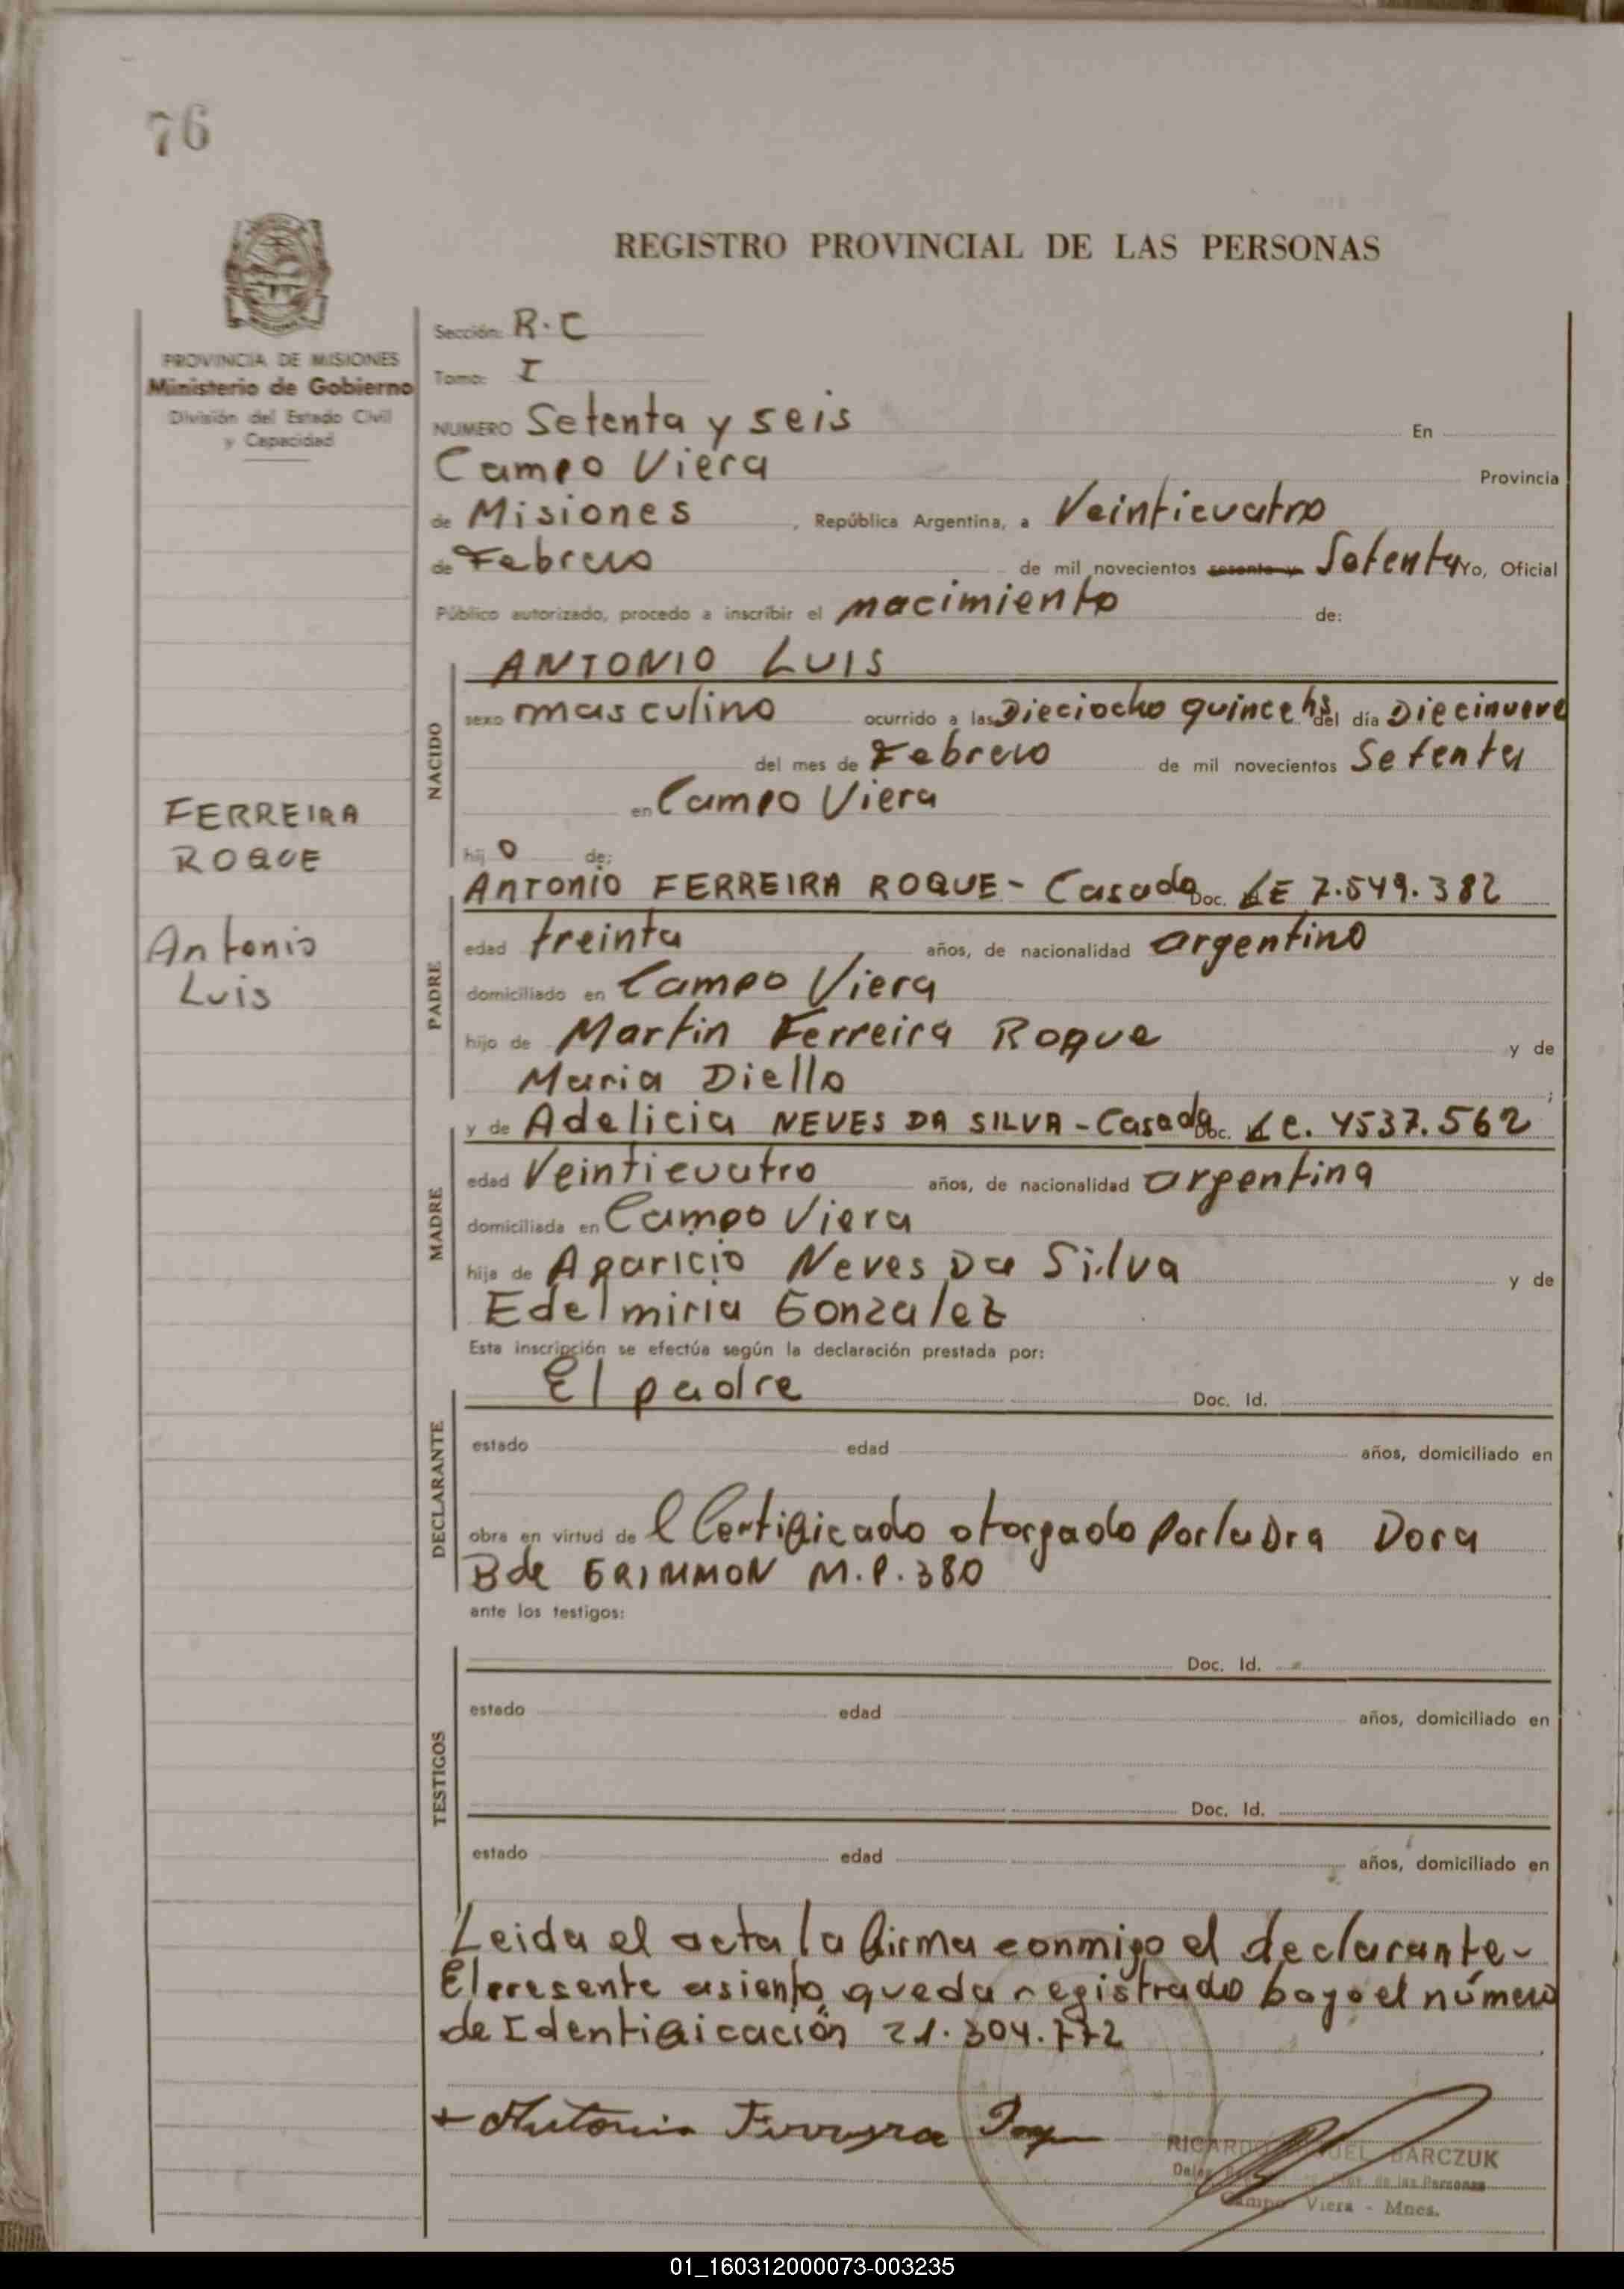 76
REGISTRO PROVINCIAL DE LAS PERSONAS
PROVINCIA DE MISIONES
Ministerio de Gobierno
División del Estado Civil
y Capacidad
FERREIRA
ROQUE
Antonio
Luis
Sección: R.C
Tomo: I
NUMERO Setenta y seis En
Campo Viera Provincia
de Misiones, República Argentina, a Veinticuatro
de Febrero de mil novecientos sesenta y Setenta Yo, Oficial
Público autorizado, procedo a inscribir el nacimiento de:
ANTONIO LUIS
NACIDO
sexo masculino ocurrido a las Dieciocho quince hs del día Diecinueve
del mes de Febrero de mil novecientos Setenta
en Campo Viera
hij o de:
PADRE
Antonio FERREIRA ROQUE - Casado Doc. LE 7.549.382
edad treinta años, de nacionalidad argentino
domiciliado en Campo Viera
hijo de Martin Ferreira Roque y de
Maria Diello ;
MADRE
y de Adelicia NEVES DA SILVA - Casada Doc. L C. 4537.562
edad Veinticuatro años, de nacionalidad argentina
domiciliada en Campo Viera
hija de Aparicio Neves Da Silva y de
Edelmiria Gonzalez
Esta inscripción se efectúa según la declaración prestada por:
DECLARANTE
El padre Doc. Id.
estado edad años, domiciliado en
obra en virtud de l Certificado otorgado por la Dra Dora
B de GRIMMON M.P. 380
ante los testigos:
TESTIGOS
Doc. Id.
estado edad años, domiciliado en
Doc. Id.
estado edad años, domiciliado en
Leida el acta la firma conmigo el declarante -
El presente asiento queda registrado bajo el número
de Identificación 21.304.772
+ Antonio Ferreyra
RICARDO BARCZUK
de las Personas
Campo Viera - Mnes.
01_160312000073-003235